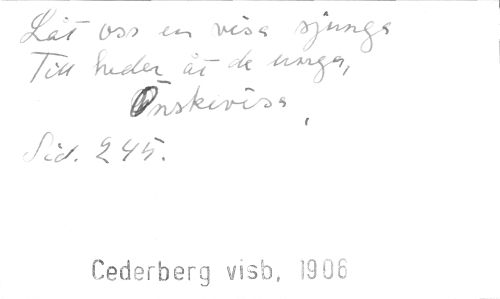 Låt oss en visa sjunga
Till heder åt de unga,
Önskevisa,
Sid. 245.
Cederberg visb, 1906